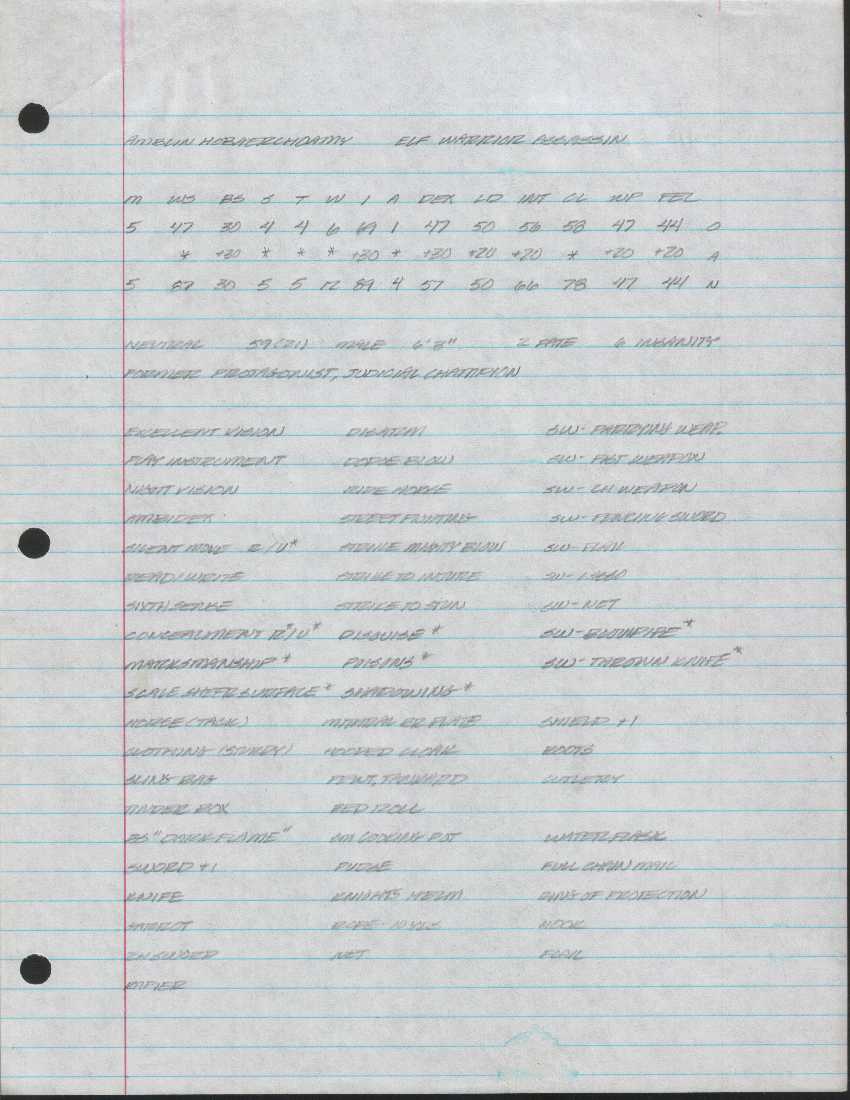 ELF WARRIOR ASSASSIN
M WS BS S T W I A DEX LD INT CL WP FEL
5 47 30 4 4 6 69 1 47 50 56 58 47 44 O
* +30 * * * +30 * +30 +20 +20 * +20 +20 A
5 67 30 5 5 12 89 4 57 50 66 78 47 44 N
NEUTRAL MALE 6'8" 2 FATE 6 INSANITY
FORMER PROTAGONIST, JUDICIAL CHAMPION
EXCELLENT VISION DISARM SW- PARRYING WEAP.
PLAY INSTRUMENT DODGE BLOW SW- FIST WEAPON
NIGHT VISION RIDE HORSE SW- 2H WEAPON
AMBIDEX STREET FIGHTING SW- FENCING SWORD
SILENT MOVE R/U* STRIKE MIGHTY BLOW SW- FLAIL
READ/WRITE STRIKE TO INJURE SW- LASSO
SIXTH SENSE STRIKE TO STUN SW- NET
CONCEALMENT R*/U* DISGUISE* SW- BLOWPIPE*
MARKSMANSHIP* POISONS* SW- THROWN KNIFE*
SCALE SHEER SURFACE* SHADOWING*
HORSE (TACK) SHIELD +1
CLOTHING (STURDY) HOODED CLOAK BOOTS
SLING BAG TANKARD CUTLERY
TINDER BOX BED ROLL
COOKING POT WATER FLASK
SWORD +1 FULL CHAIN MAIL
KNIFE KNIGHTS HELM RING OF PROTECTION
ROPE- 10 YDS HOOK
2H SWORD NET FLAIL
RAPIER